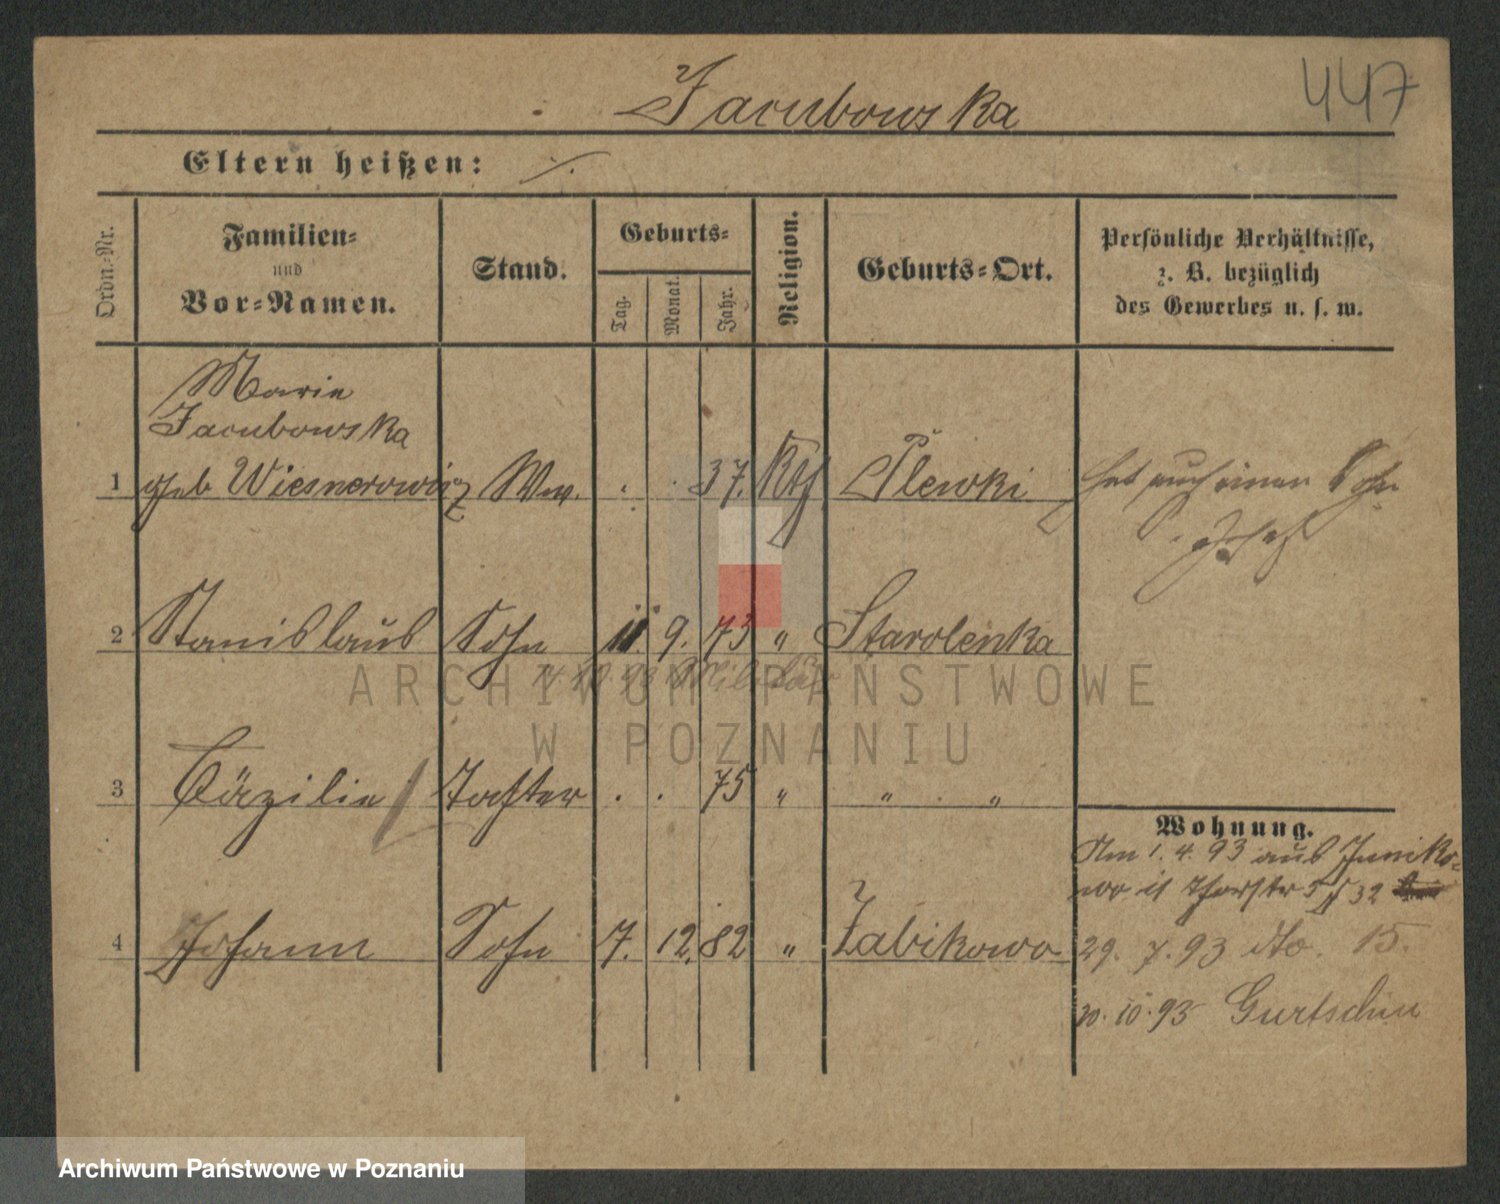 447
Jacubowska
Eltern heißen: ./.
Ordn.-Nr.
Familien-
und
Vor-Namen.
Stand.
Geburts-
Tag.
Monat.
Jahr.
Religion.
Geburts-Ort.
Persönliche Verhältnisse,
z. B. bezüglich
des Gewerbes u. s. w.
Marie
Jacubowska
1 geb Wiesnerowicz Ww. . . 37. Kth Plewki
hat auch einen Sohn
Josef
2 Stanislaus Sohn 11. 9. 73 " Starolenka
14 10 93 Militär
3 Cäzilie Tochter . . 75 " " "
4 Johann Sohn 7. 12. 82 " Żabikowo
Wohnung.
Am 1. 4. 93 aus Juniko-
wo 32
29. 7. 93 dto. 15.
20. 10. 93 Gurtschin
ARCHIWUM PAŃSTWOWE
W POZNANIU
Archiwum Państwowe w Poznaniu